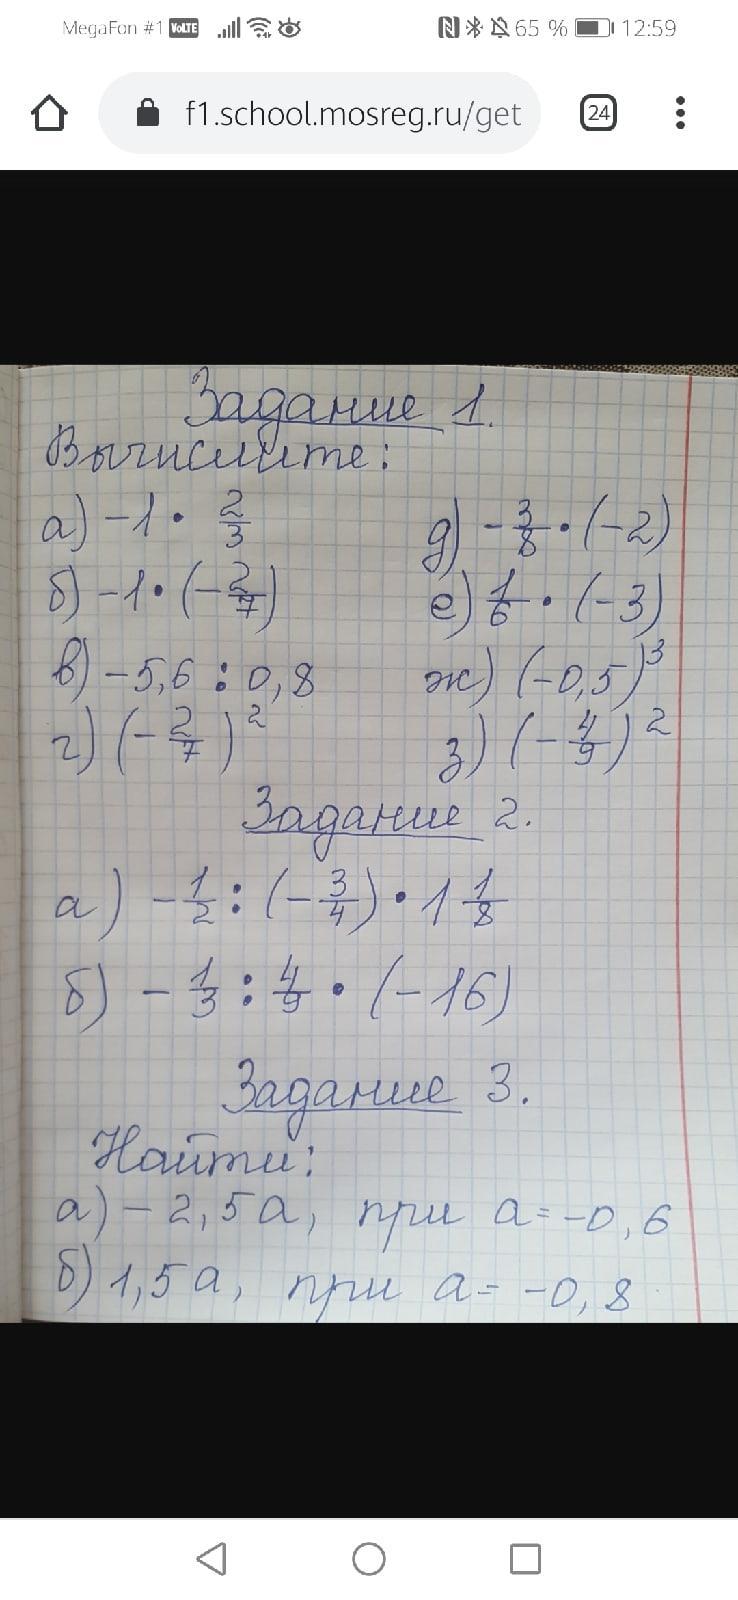 MegaFon #1 VoLTE 65 % 12:59
f1.school.mosreg.ru/get 24
Задание 1.
Вычислите:
а) -1 · 2/3 д) -3/8 · (-2)
б) -1 · (-2/7) е) 1/6 · (-3)
в) -5,6 : 0,8 ж) (-0,5)³
г) (-2/7)² з) (-4/9)²
Задание 2.
а) -1/2 : (-3/4) · 1 1/8
б) -1/3 : 4/9 · (-16)
Задание 3.
Найти:
а) -2,5а, при а=-0,6
б) 1,5а, при а= -0,8